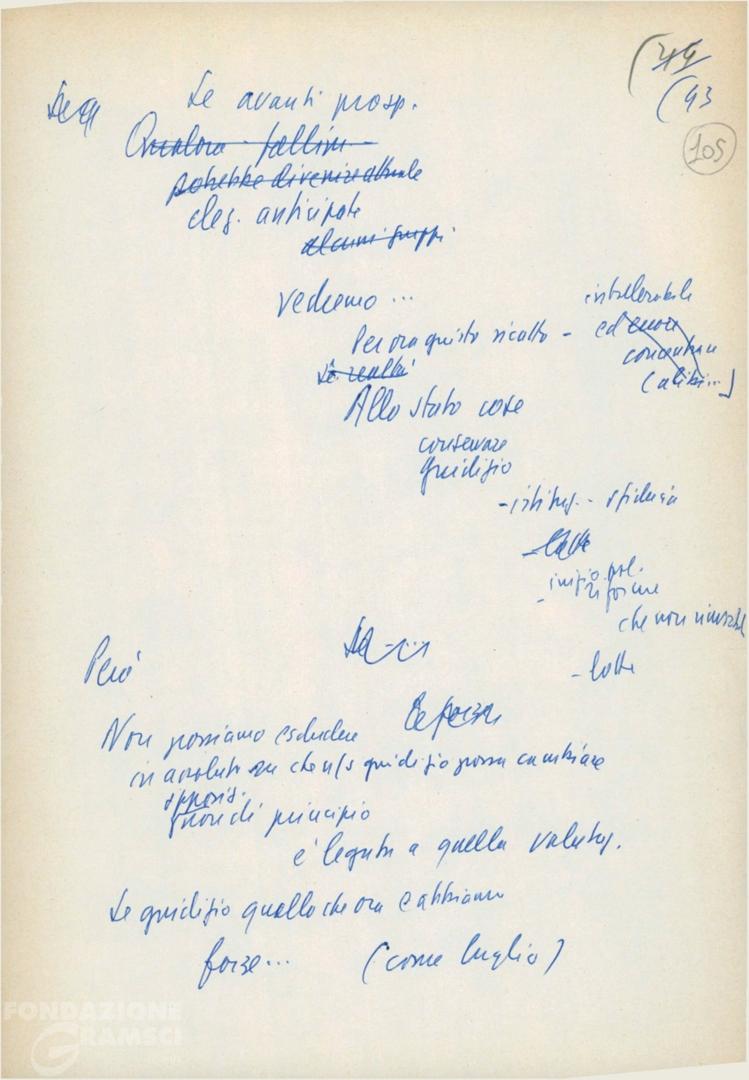 (44
(43
105
Se avanti prosp.
Qualora - fallim
potrebbe divenire attuale
elez. anticipate
alcuni gruppi
vedremo ...
intollerabile
Per ora questo ricatto - ed
concentrare
(alibi...)
Se realtà
Allo stato cose
conservare
giudizio
- istituz. - sfiducia
- lotte
- inizio pol.
riforme
che non
Però
- lotte
Non possiamo escludere Le forze
in assoluto che n/s giudizio possa cambiare
opposiz.
non di principio
è legata a quella valutaz.
Se giudizio quello che ora abbiamo
forze... (come luglio)
FONDAZIONE
GRAMSCI